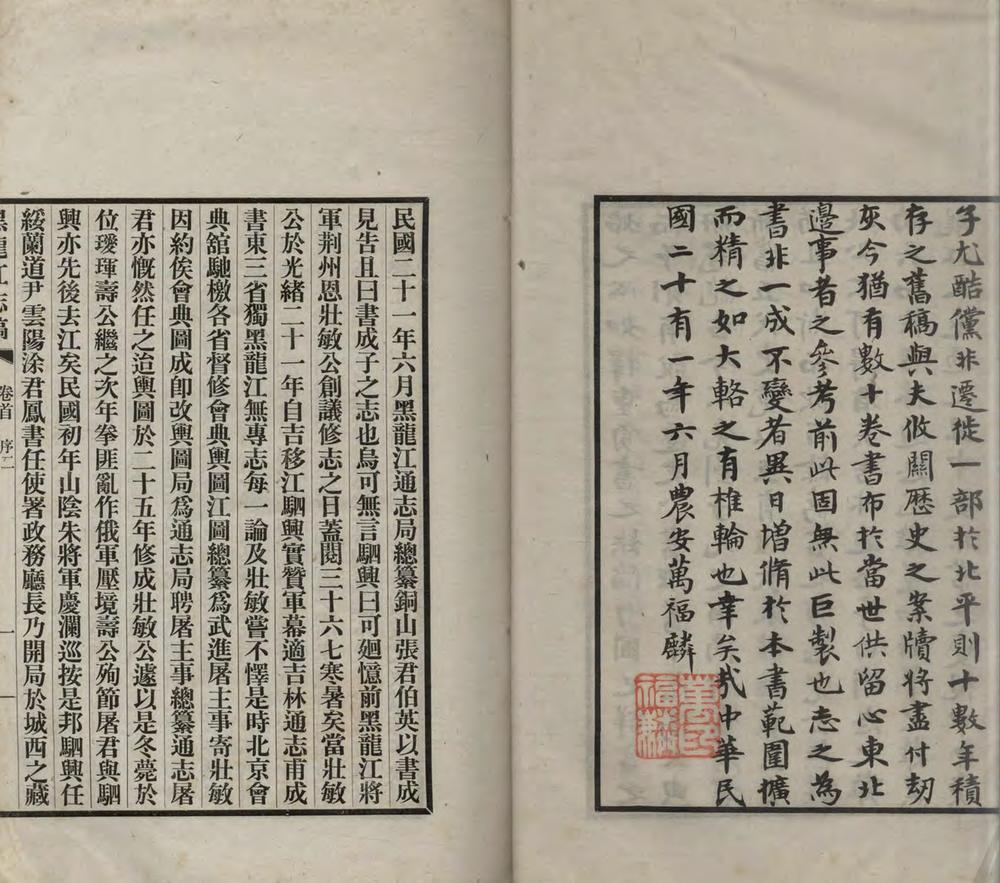 予尤酷儻非遷徙一部於北平則十數年積
存之舊稿與夫攸關歷史之案牘將盡付劫
灰今猶有數十卷書布於當世供留心東北
邊事者之參考前此固無此巨製也志之為
書非一成不變者異日增脩於本書範圍擴
而精之如大輅之有椎輪也幸矣哉中華民
國二十有一年六月農安萬福麟
萬福麟印
民國二十一年六月黑龍江通志局總纂銅山張君伯英以書成
見告且曰書成子之志也烏可無言駟興曰可迴憶前黑龍江將
軍荆州恩壯敏公創議修志之日蓋閱三十六七寒暑矣當壯敏
公於光緒二十一年自吉移江駟興實贊軍幕適吉林通志甫成
書東三省獨黑龍江無專志每一論及壯敏嘗不懌是時北京會
典舘馳檄各省督修會典輿圖江圖總纂爲武進屠主事寄壯敏
因約俟會典圖成卽改輿圖局爲通志局聘屠主事總纂通志屠
君亦慨然任之迨輿圖於二十五年修成壯敏公遽以是冬薨於
位璦琿壽公繼之次年拳匪亂作俄軍壓境壽公殉節屠君與駟
興亦先後去江矣民國初年山陰朱將軍慶瀾巡按是邦駟興任
綏蘭道尹雲陽涂君鳳書任使署政務廳長乃開局於城西之藏
黑龍江志稿 卷首 序二 一